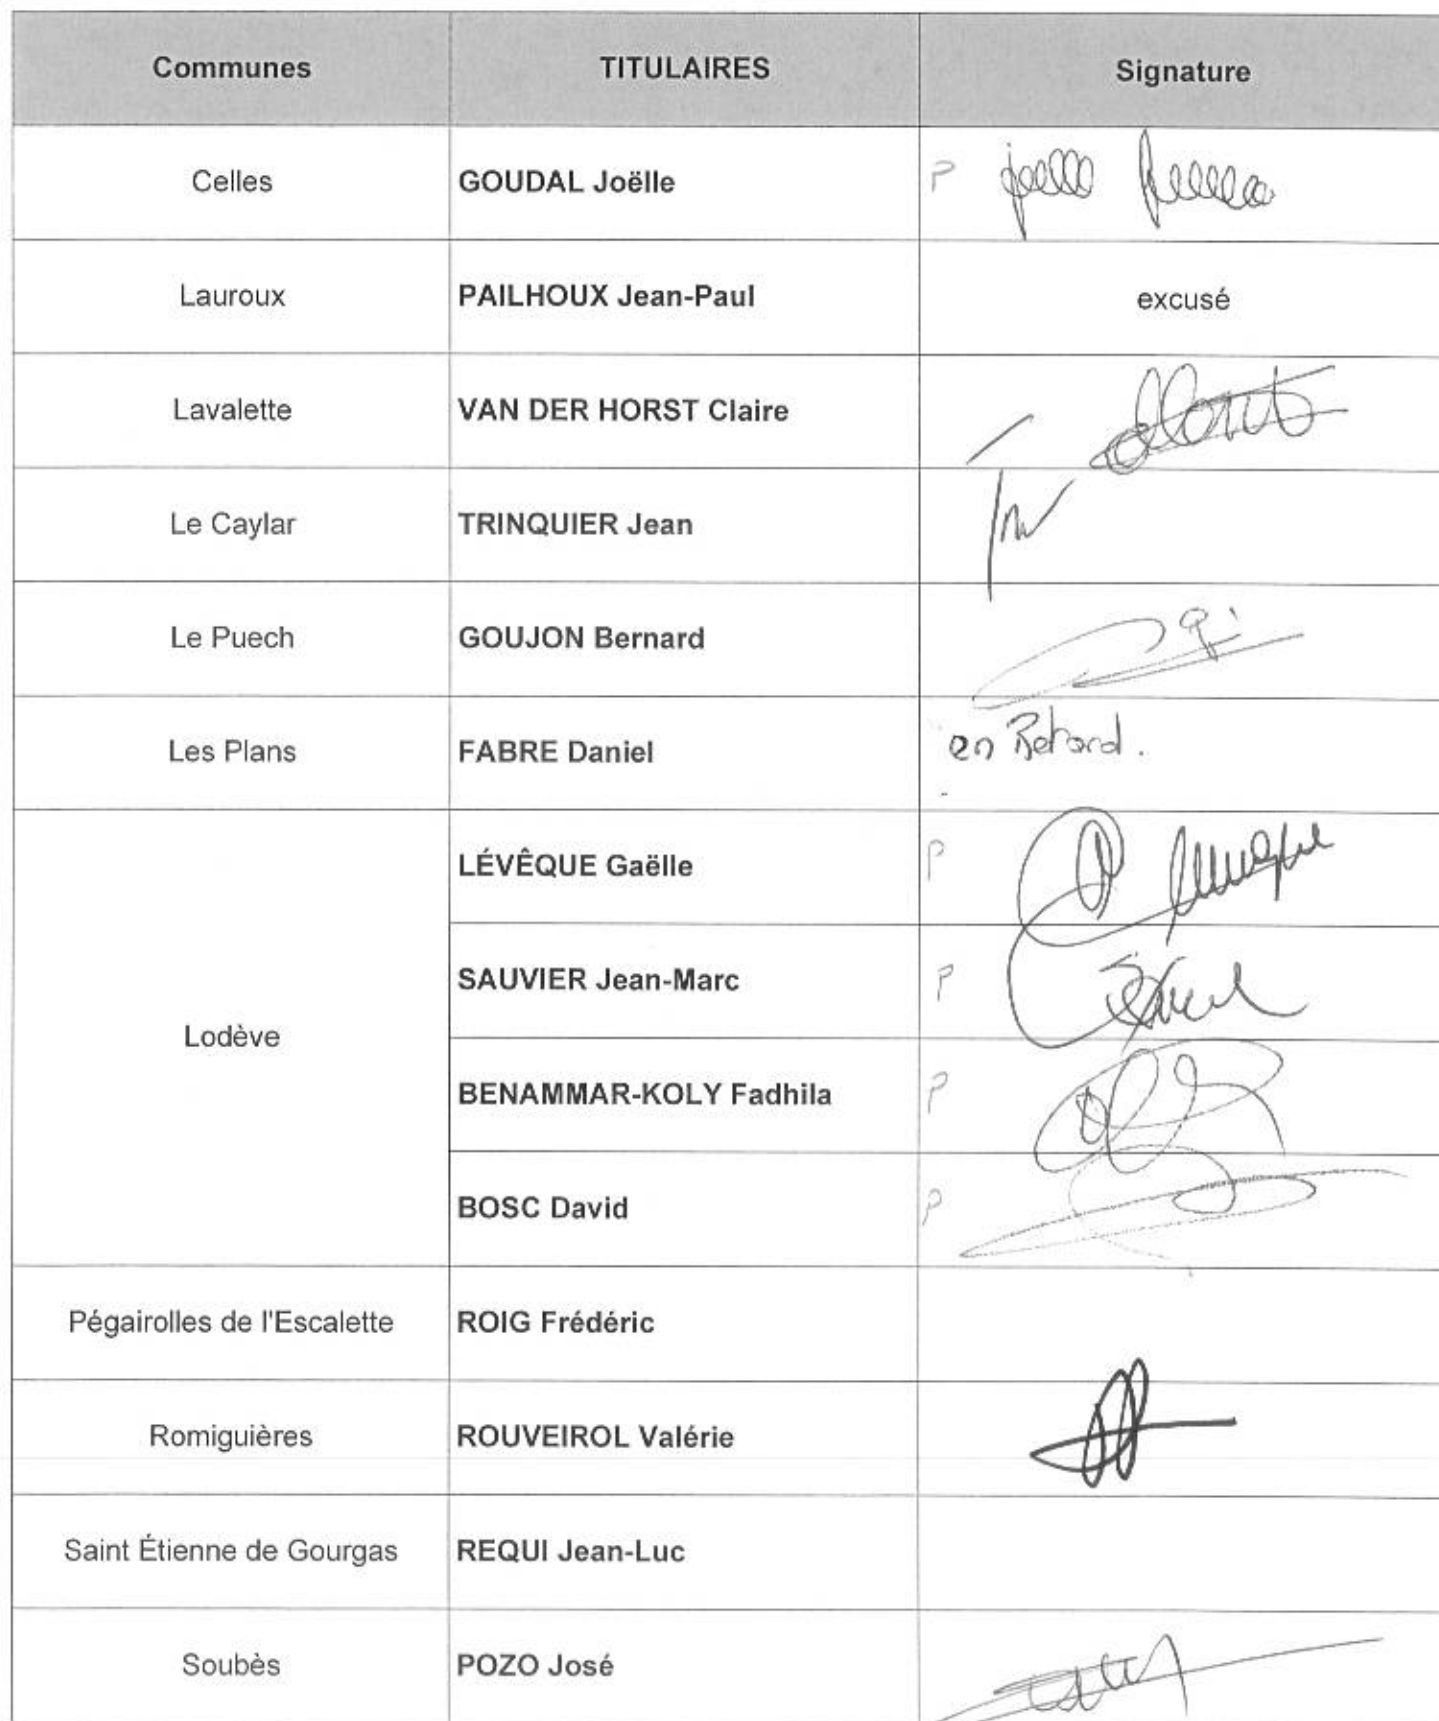 Communes TITULAIRES Signature
Celles GOUDAL Joëlle P Joelle
Lauroux PAILHOUX Jean-Paul excusé
Lavalette VAN DER HORST Claire
Le Caylar TRINQUIER Jean
Le Puech GOUJON Bernard
Les Plans FABRE Daniel en Retard.
LÉVÊQUE Gaëlle P
SAUVIER Jean-Marc P
Lodève
BENAMMAR-KOLY Fadhila P
BOSC David P
Pégairolles de l'Escalette ROIG Frédéric
Romiguières ROUVEIROL Valérie
Saint Étienne de Gourgas REQUI Jean-Luc
Soubès POZO José